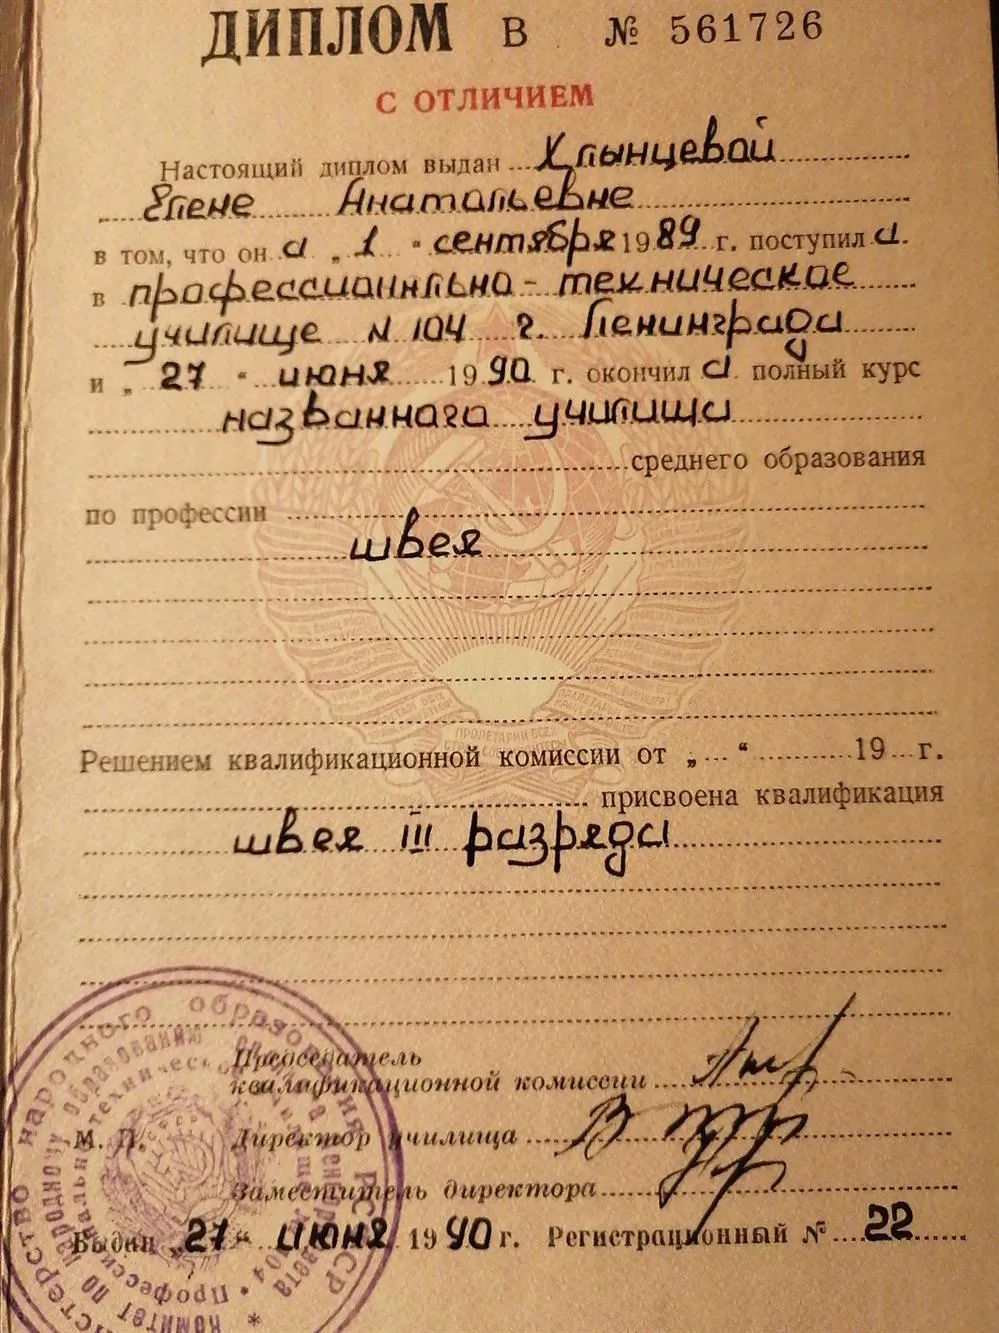 ДИПЛОМ В № 561726
С ОТЛИЧИЕМ
Настоящий диплом выдан Хлынцевой
Елене Анатольевне
в том, что он а „1“ сентября 1989 г. поступил а.
в профессионально-техническое
училище N 104 г. Ленинграда
и „27“ июня 1990 г. окончил а полный курс
названного училища
среднего образования
по профессии
швея
ПРОЛЕТАРИИ ВСЕХ
Решением квалификационной комиссии от „...“ 19 г.
присвоена квалификация
швея III разряда
Председатель
квалификационной комиссии
М. П. Директор училища
Заместитель директора
Выдан „27“ июня 1990 г. Регистрационный № 22
народного образования РСФСР
Комитет по народному образованию